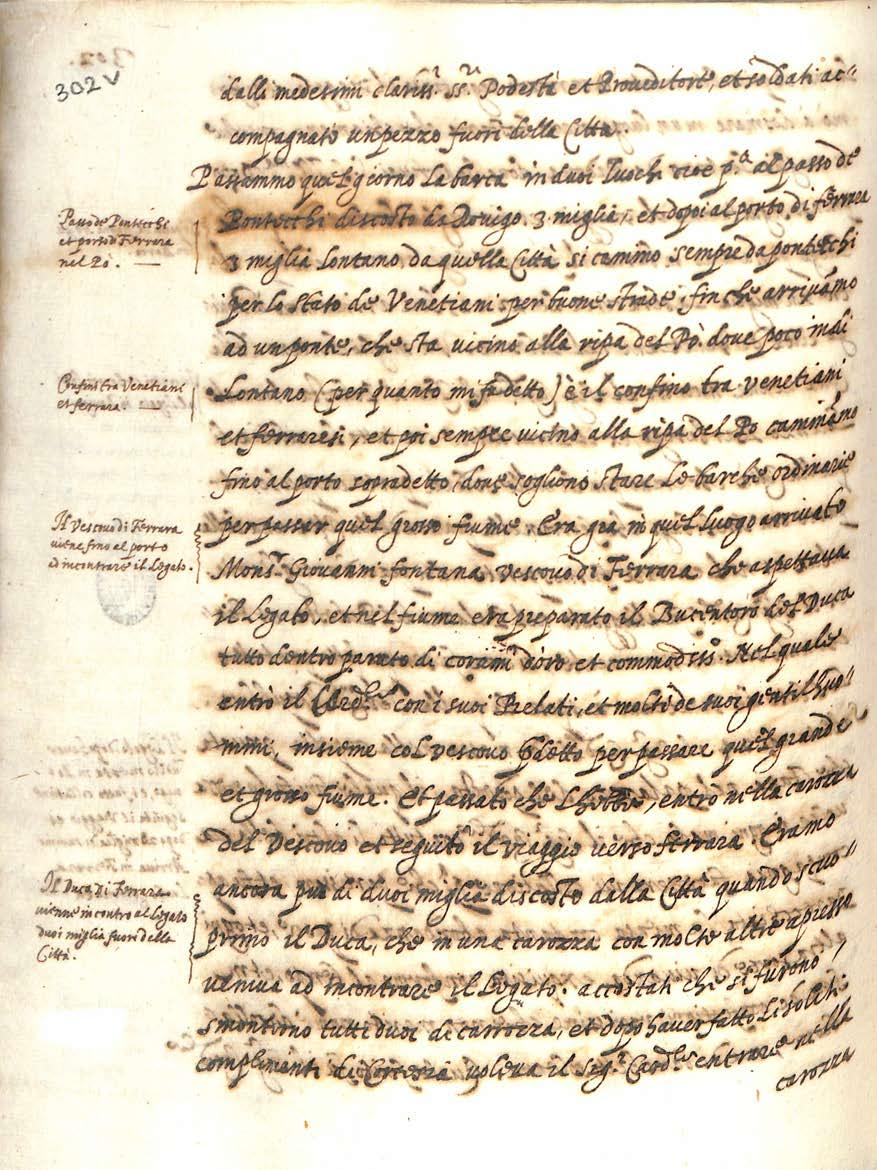 302 v
dalli medesimi clariss.i ss.ri Podestà et Proveditore, et soldati ac=
compagnato un pezzo fuori della Città.
Passammo quel giorno la barca in duoi luochi cioè p.a al passo de
Pontecchi discosto da Rovigo 3 miglia, et dopoi al porto di ferrara
3 miglia lontano da quella Città si caminò sempre da pontecchi
per lo stato de Venetiani per buone strade, fin che arrivamo
ad un ponte, che sta vicino alla ripa del Pò dove poco indi
lontano (per quanto mi fù detto) è il confino tra venetiani
et ferraresi, et poi sempre vicino alla ripa del Po caminamo
fino al porto sopradetto, dove sogliono stare le barche ordinarie
per passar quel grosso fiume. Era gia in quel luogo arrivato
Mons.r Giovanni fontana Vescovo di Ferrara che aspettava
il Legato, et nel fiume era preparato il Bucentoro del Duca
tutto dentro parato di corami d'oro et commodiss.o Nel quale
entrò il Card.le con i suoi Prelati, et molti de suoi gentilhuo=
mini, insieme col vescovo p.detto per passare quel grande
et grosso fiume. Et passato che l'hebbe, entrò nella carozza
del Vescovo et seguitò il viaggio verso ferrara. Eramo
ancora più di duoi miglia discosto dalla Città quando scuo=
primo il Duca, che in una carozza con molte altre apresso
veniva ad incontrare il Legato. accostati che si furono
smontorno tutti duoi di carrozza, et dopo haver fatto li soliti
complimenti di Cortesia voleva il Sig.r Card.le entrare nella
carozza
Passo de Pontecchi
et porto di Ferrara
nel Po.
Confini tra Venetiani
et ferrara.
Il Vescovo di Ferrara
viene fino al porto
ad incontrare il Legato.
Il Duca di Ferrara
vienne incontro al Legato
duoi miglia fuori della
Città.